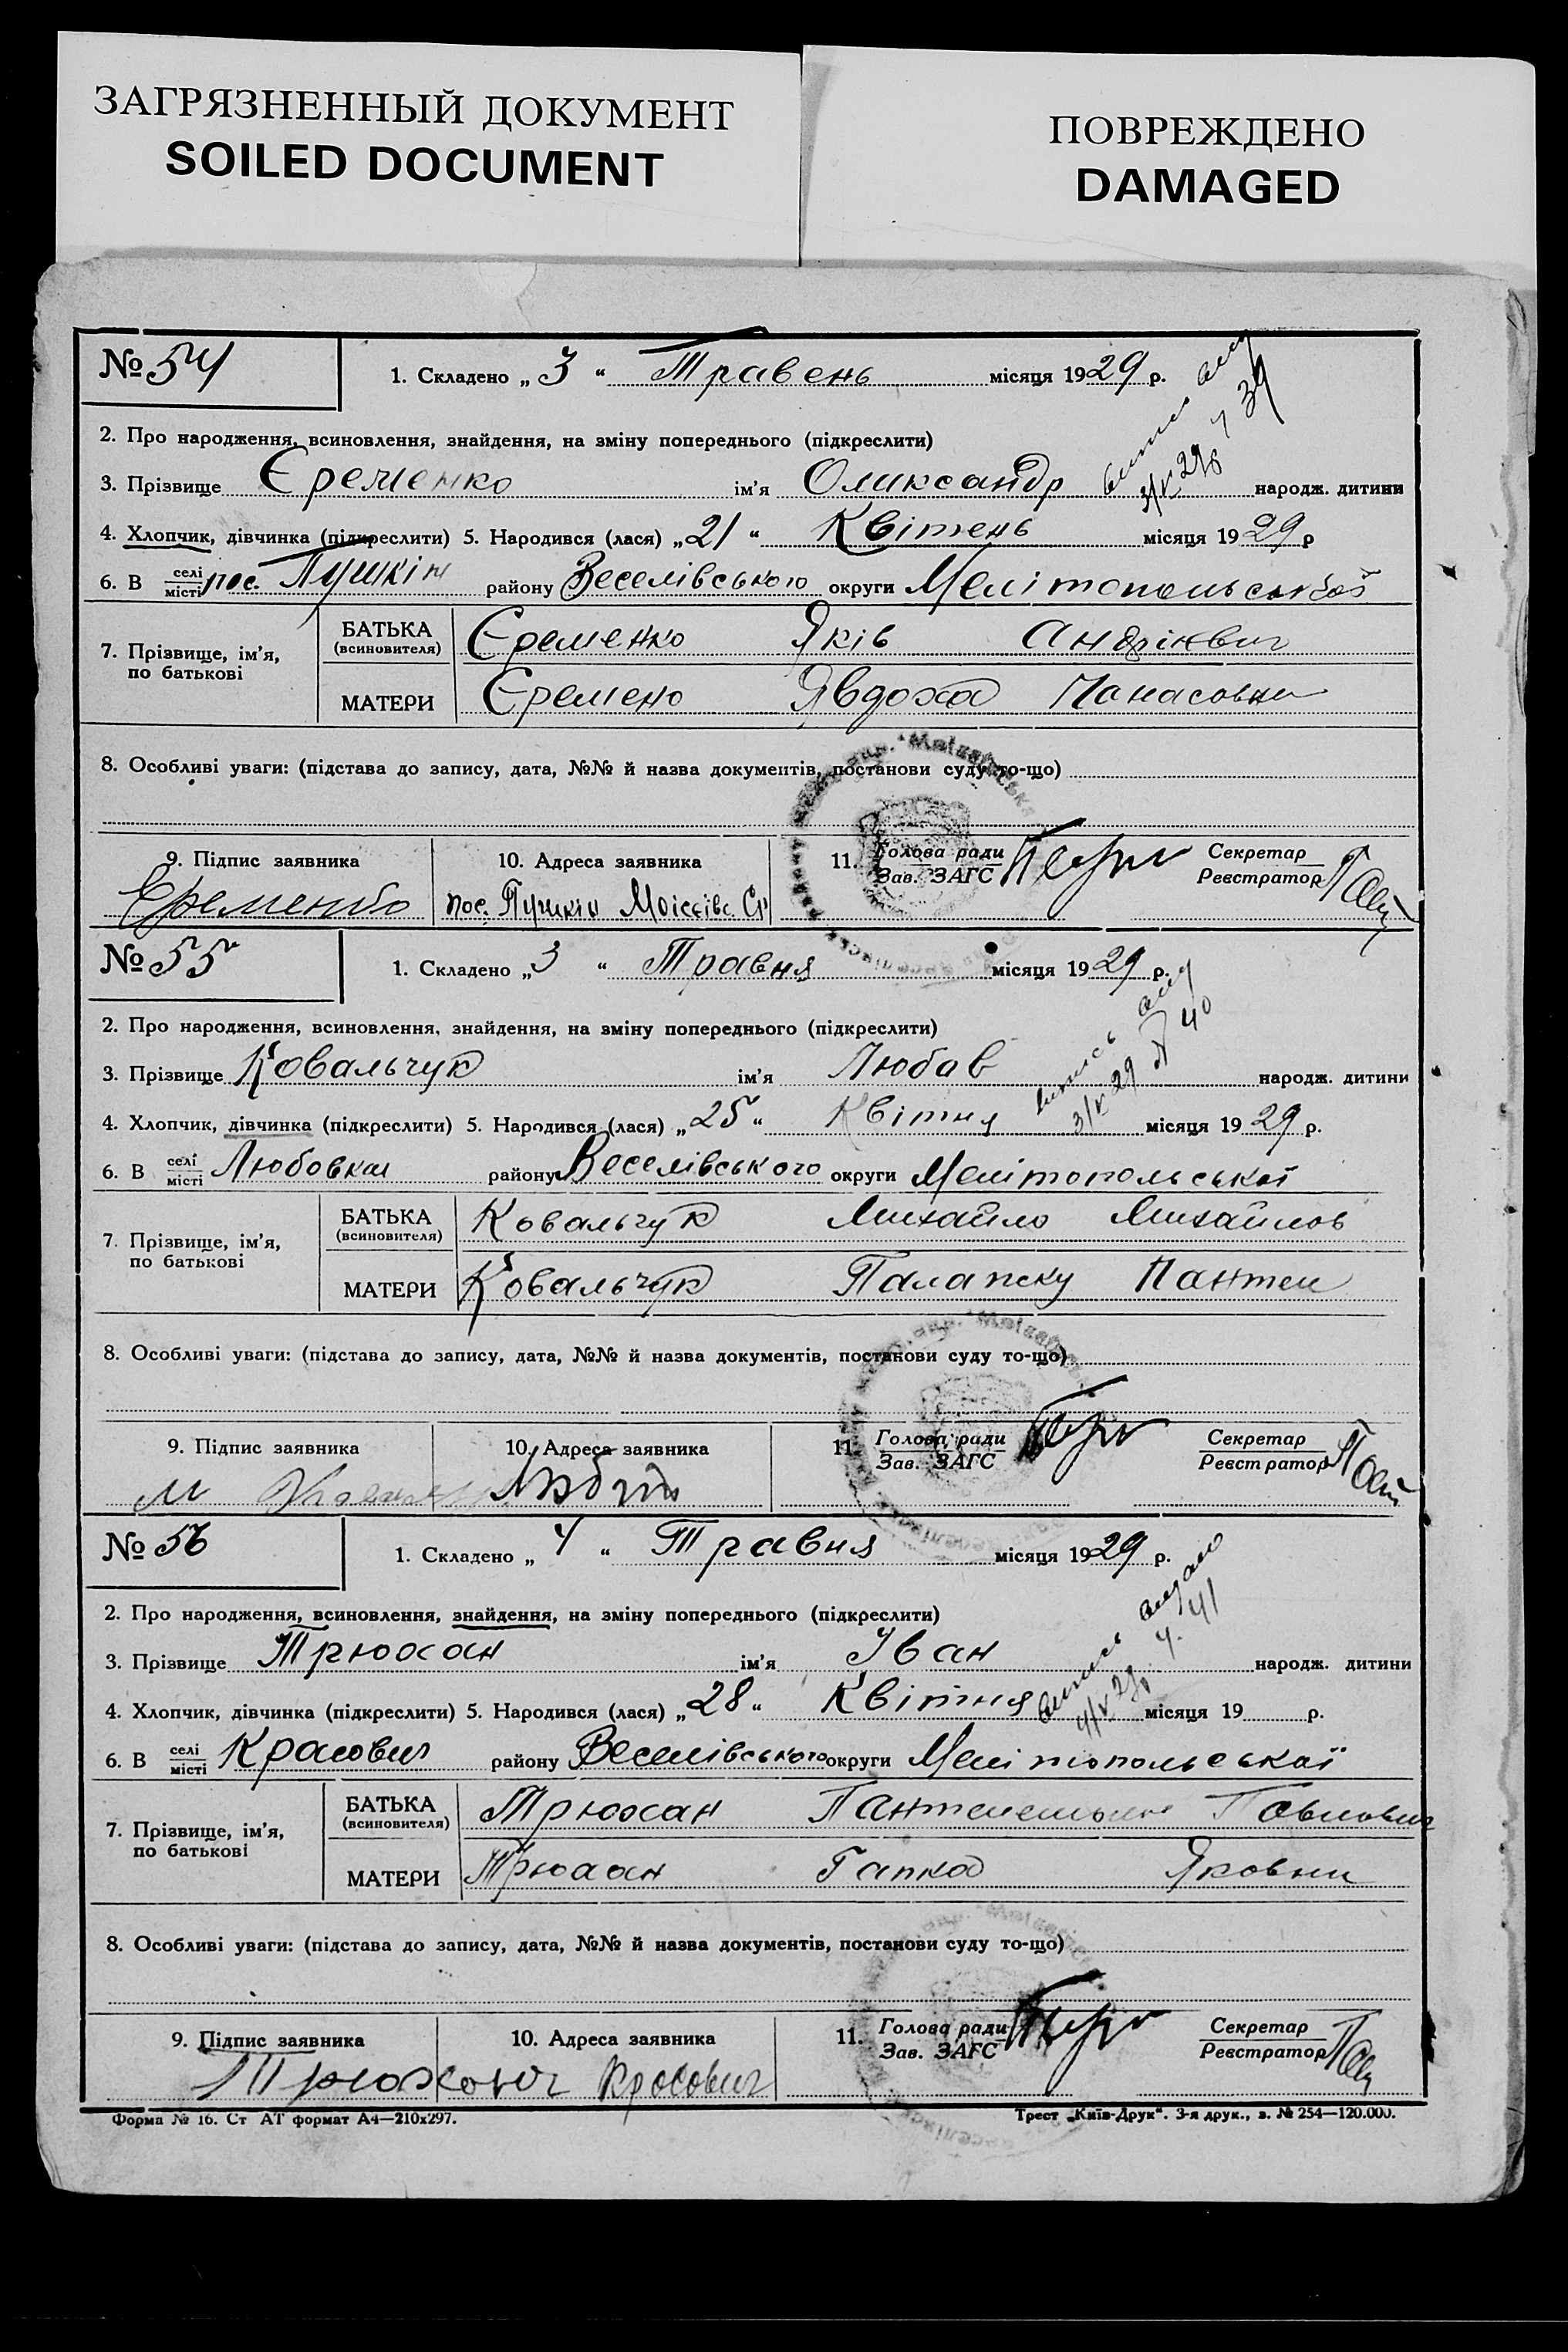 ЗАГРЯЗНЕННЫЙ ДОКУМЕНТ
SOILED DOCUMENT
ПОВРЕЖДЕНО
DAMAGED
№ 54
1. Складено „ 3 “ Травень місяця 1929 р.
2. Про народження, всиновлення, знайдення, на зміну попереднього (підкреслити)
3. Прізвище Єременко ім’я Олександр народж. дитини
4. Хлопчик, дівчинка (підкреслити) 5. Народився (лася) „ 21 “ Квітень місяця 1929 р
6. В селі місті пос. Пушкін району Веселівського округи Мелітопольської
7. Прізвище, ім’я, по батькові
БАТЬКА (всиновителя) Єременко Яків Андрієвич
МАТЕРИ Єремено Явдоха Панасовни
8. Особливі уваги: (підстава до запису, дата, №№ й назва документів, постанови суду то-що)
9. Підпис заявника 10. Адреса заявника 11. Голова ради Зав. ЗАГС Секретар Реєстратор
Єременко пос. Пушкін Моісєївс. С/р
3/V 29 39
№ 55
1. Складено „ 3 “ Травня місяця 1929 р.
2. Про народження, всиновлення, знайдення, на зміну попереднього (підкреслити)
3. Прізвище Ковальчук ім’я Любав народж. дитини
4. Хлопчик, дівчинка (підкреслити) 5. Народився (лася) „ 25 “ Квітня місяця 1929 р.
6. В селі місті Любовка району Веселівського округи Мелітопольської
7. Прізвище, ім’я, по батькові
БАТЬКА (всиновителя) Ковальчук Михайло Михайлов
МАТЕРИ Ковальчук Пантел
8. Особливі уваги: (підстава до запису, дата, №№ й назва документів, постанови суду то-що)
9. Підпис заявника 10. Адреса заявника 11. Голова ради Зав. ЗАГС Секретар Реєстратор
М
3/V 29 40
№ 56
1. Складено „ 4 “ Травня місяця 1929 р.
2. Про народження, всиновлення, знайдення, на зміну попереднього (підкреслити)
3. Прізвище Трюхан ім’я Іван народж. дитини
4. Хлопчик, дівчинка (підкреслити) 5. Народився (лася) „ 28 “ Квітня місяця 19 р.
6. В селі місті району Веселівського округи Мелітопольської
7. Прізвище, ім’я, по батькові
БАТЬКА (всиновителя) Трюхан Павлович
МАТЕРИ Трюхан Гапка Яковни
8. Особливі уваги: (підстава до запису, дата, №№ й назва документів, постанови суду то-що)
9. Підпис заявника 10. Адреса заявника 11. Голова ради Зав. ЗАГС Секретар Реєстратор
4/V 29 41
Форма № 16. Ст АТ формат А4—210x297.
Трест „Київ-Друк“. 3-я друк., з. № 254—120.000.